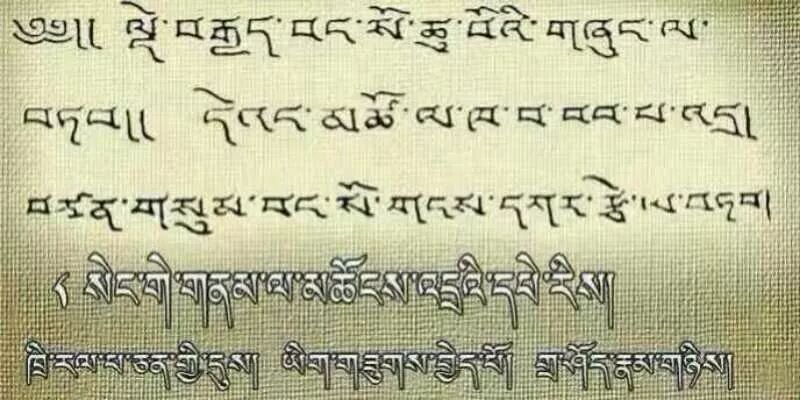 ༄༅།། ལྡེ་བརྒྱད་བང་སོ་ཆུ་བོའི་གཞུང་ལ་
བཏབ།། དེའང་མཚོ་ལ་ཁ་བ་བབ་པ་འདྲ།
བཙན་གསུམ་བང་སོ་གངས་དཀར་རྩེ་ལ་བཏབ།
སེང་གེ་གནམ་ལ་མཆོངས་འདྲའི་དཔེ་རིས།
ཁྲི་རལ་པ་ཅན་གྱི་དུས། ཡིག་གཟུགས་བྱེད་པོ། གྲ་ཤོད་རྣམ་གཉིས།